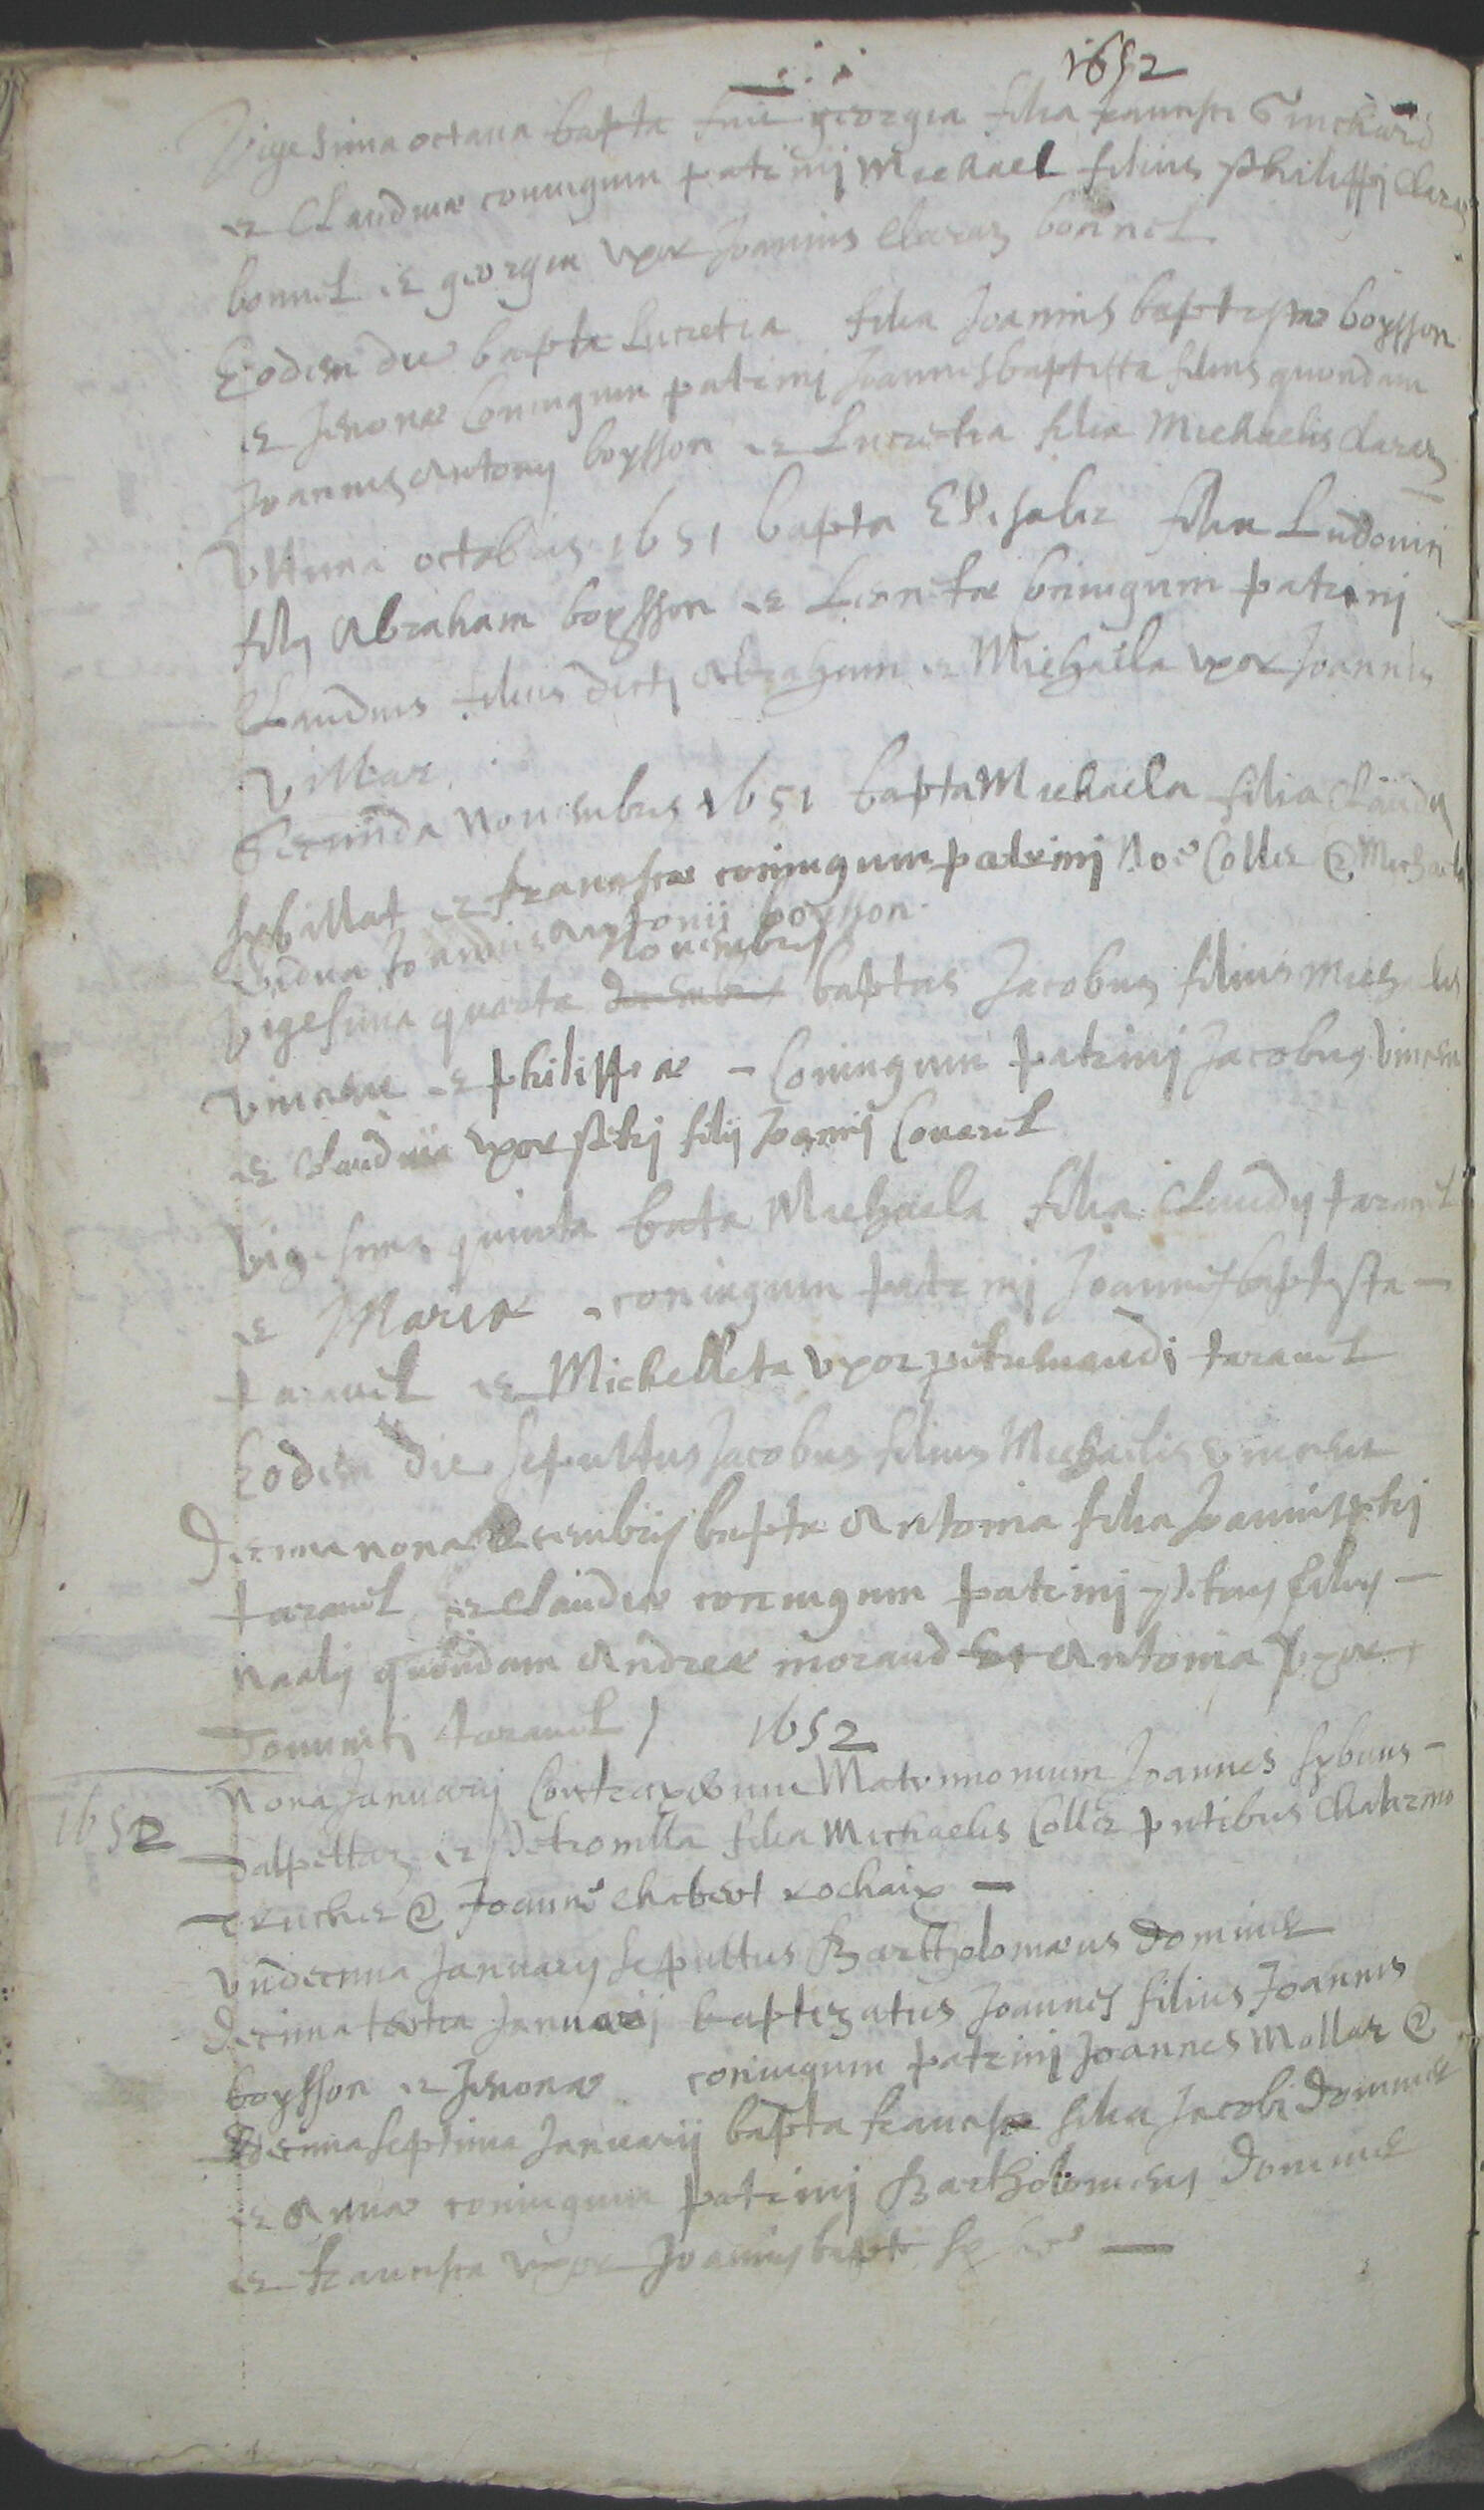 1652
Vigesima octava bapta fuit georgia filia francisci
et Claudinae coniugum patrinj Michael filius philippj Claraz
bonnet et georgia uxor Joannis Claraz bonnet
Eodem die bapta Lucretia filia Joannis baptistae boysson
et Jenonae Coniugum patrinj Joannesbaptista filius quondam
Joannis Antonij boysson et Lucretia filia Michaelis Claraz
Ultima octobris 1651 bapta Elisabet filia Ludovici
filij Abraham boysson et coniugum patrinj
Claudius filius dictj Abraham et Michaela uxor Joannis
Villar
Secunda Novembris 1651 bapta Michaela filia Claudij
Sybillat et franciscae coniugum patrinj Noe Collet & Michaela
vidua Joannis Antonij boysson
Novembris
Vigesima quarta decembris baptus Jacobus filius Michaelis
Vincent et philippae - Coniugum patrinj Jacobus Vincent
et Claudia uxor ptrj filij Joannis Couaret
Vigesima quinta bata Michaela filia Claudij tarauel
et Mariae coniugum patrinj Joannesbaptista -
tarauel et Michelleta uxor tarauel
Eodem die sepultus Jacobus filius Michaelis vincent
Decima nona decembris bapta Antonia filia Joannis ptrj
tarauel et Claudiae coniugum patrinj filius -
quondam Andreae moraud Et Antonia Uxor
tarauel 1652
1652
Nona Januarij Contraxerunt Matrimonium Joannes Sybuus -
Dalpettaz et Petronilla filia Michaelis Collet pntibus
& Joanne Chabert rochaix -
Undecima Januarij sepultus Bartholomaeus Dominet
Decima tertia Januarij baptizatus Joannes filius Joannis
boysson et Jenonae coniugum patrinj Joannes Mollar &
Decimaseptima Januarij bapta francisca filia Jacobi Dominet
et Annae coniugum patrinj Bartholomeus Dominet
et francisca uxor Joannis bapte